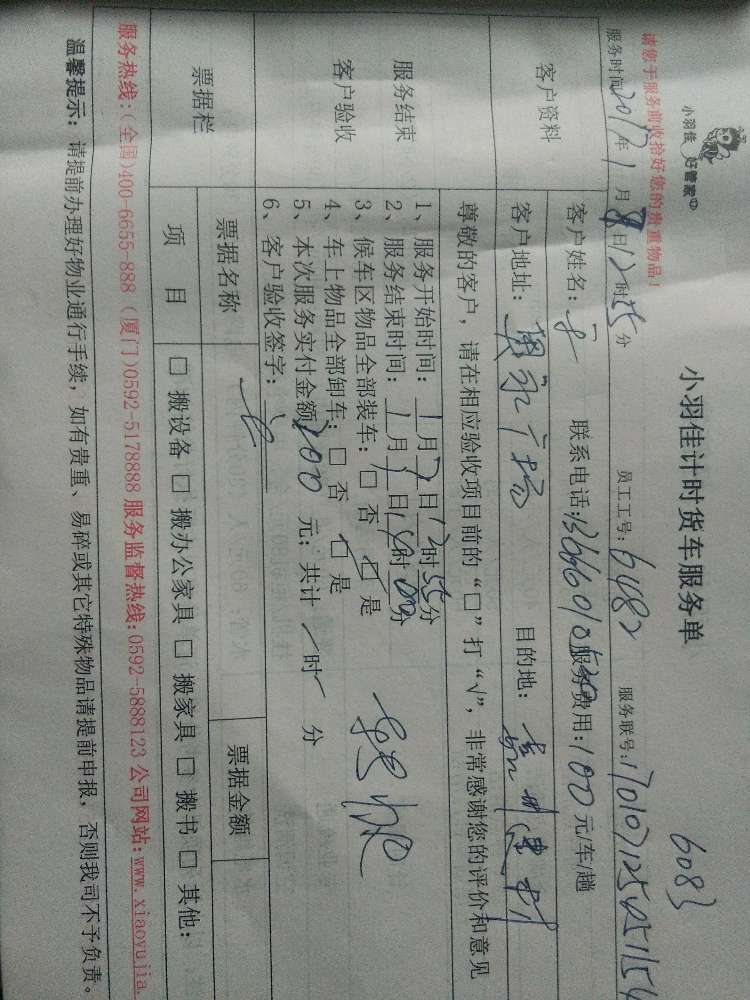 小羽佳 好管家
小羽佳计时货车服务单
6083
请您于服务前收拾好您的贵重物品！
服务时间：2017年1月8日12时55分 员工工号：6482 服务联号：
客户资料
客户姓名： 联系电话： 服务费用：100元/车/趟
客户地址： 目的地：
服务结束
客户验收
尊敬的客户，请在相应验收项目前的“□”打“√”，非常感谢您的评价和意见
1、服务开始时间：1月7日12时55分
2、服务结束时间：1月 日 时00分
3、候车区物品全部装车：□ 否 □ 是
4、车上物品全部卸车：□ 否 □ 是
5、本次服务实付金额 元；共计 时 分
6、客户验收签字：
票据栏
票据名称 票据金额
项 目 □ 搬设备 □ 搬办公家具 □ 搬家具 □ 搬书 □ 其他：
服务热线：(全国)400-6655-888 (厦门)0592-5178888 服务监督热线：0592-5888123 公司网站：www.xiaoyujia.
温馨提示：请提前办理好物业通行手续，如有贵重、易碎或其它特殊物品请提前申报，否则我司不予负责。